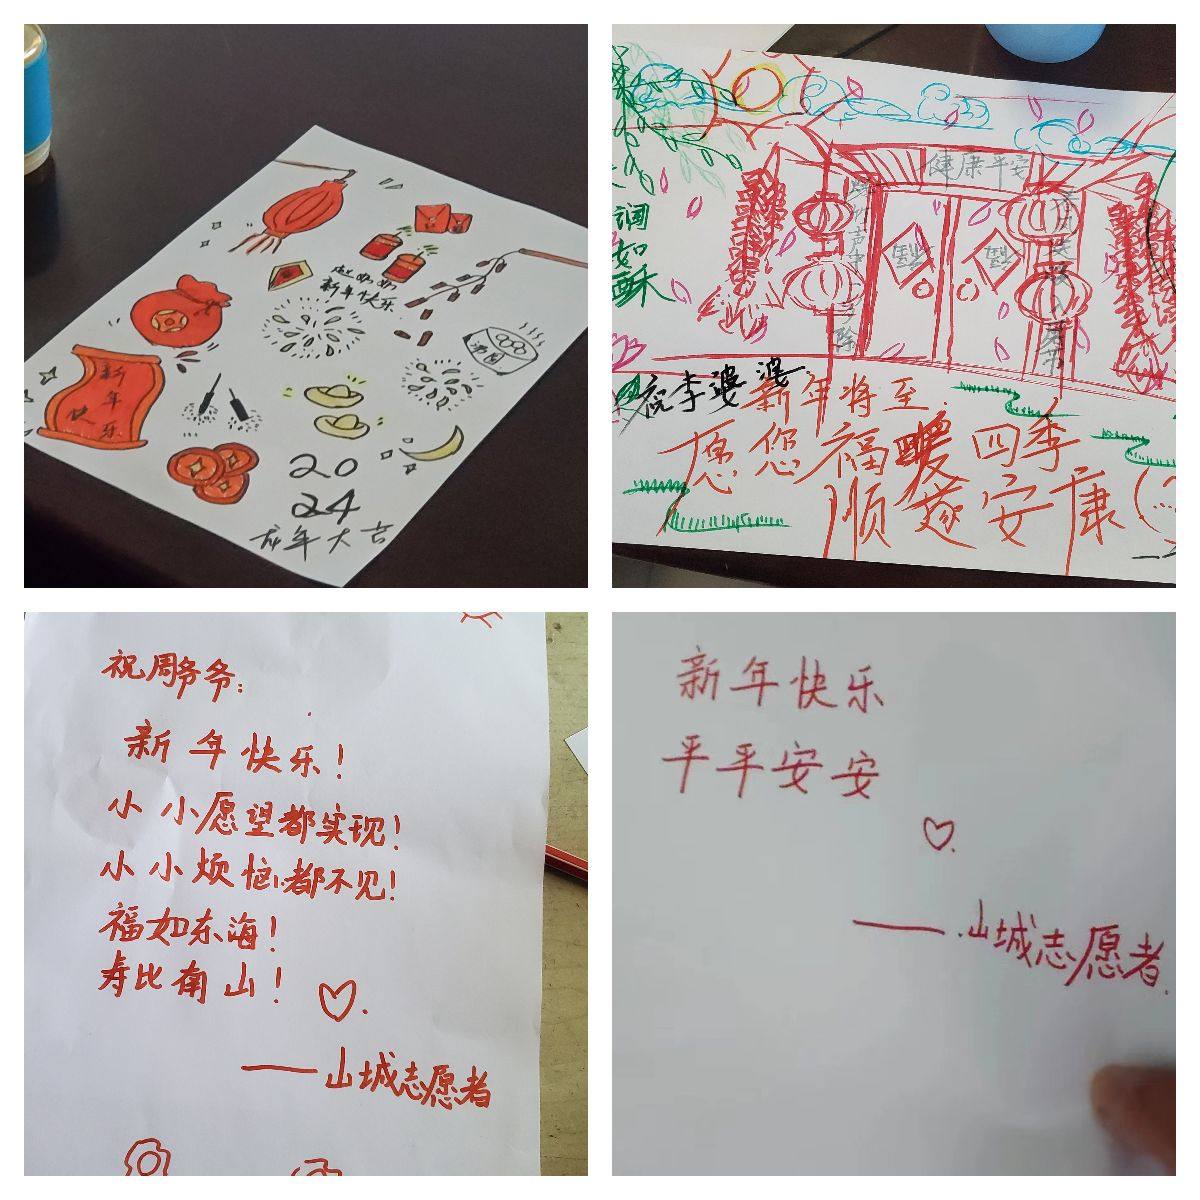 新年快乐
新年快乐
汤圆
20
24
龙年大吉
健康平安
润如酥
李婆婆
新年将至
愿您福暖四季
顺遂安康
祝周爷爷：
新年快乐！
小小愿望都实现！
小小烦恼都不见！
福如东海！
寿比南山！
——山城志愿者
新年快乐
平平安安
——山城志愿者